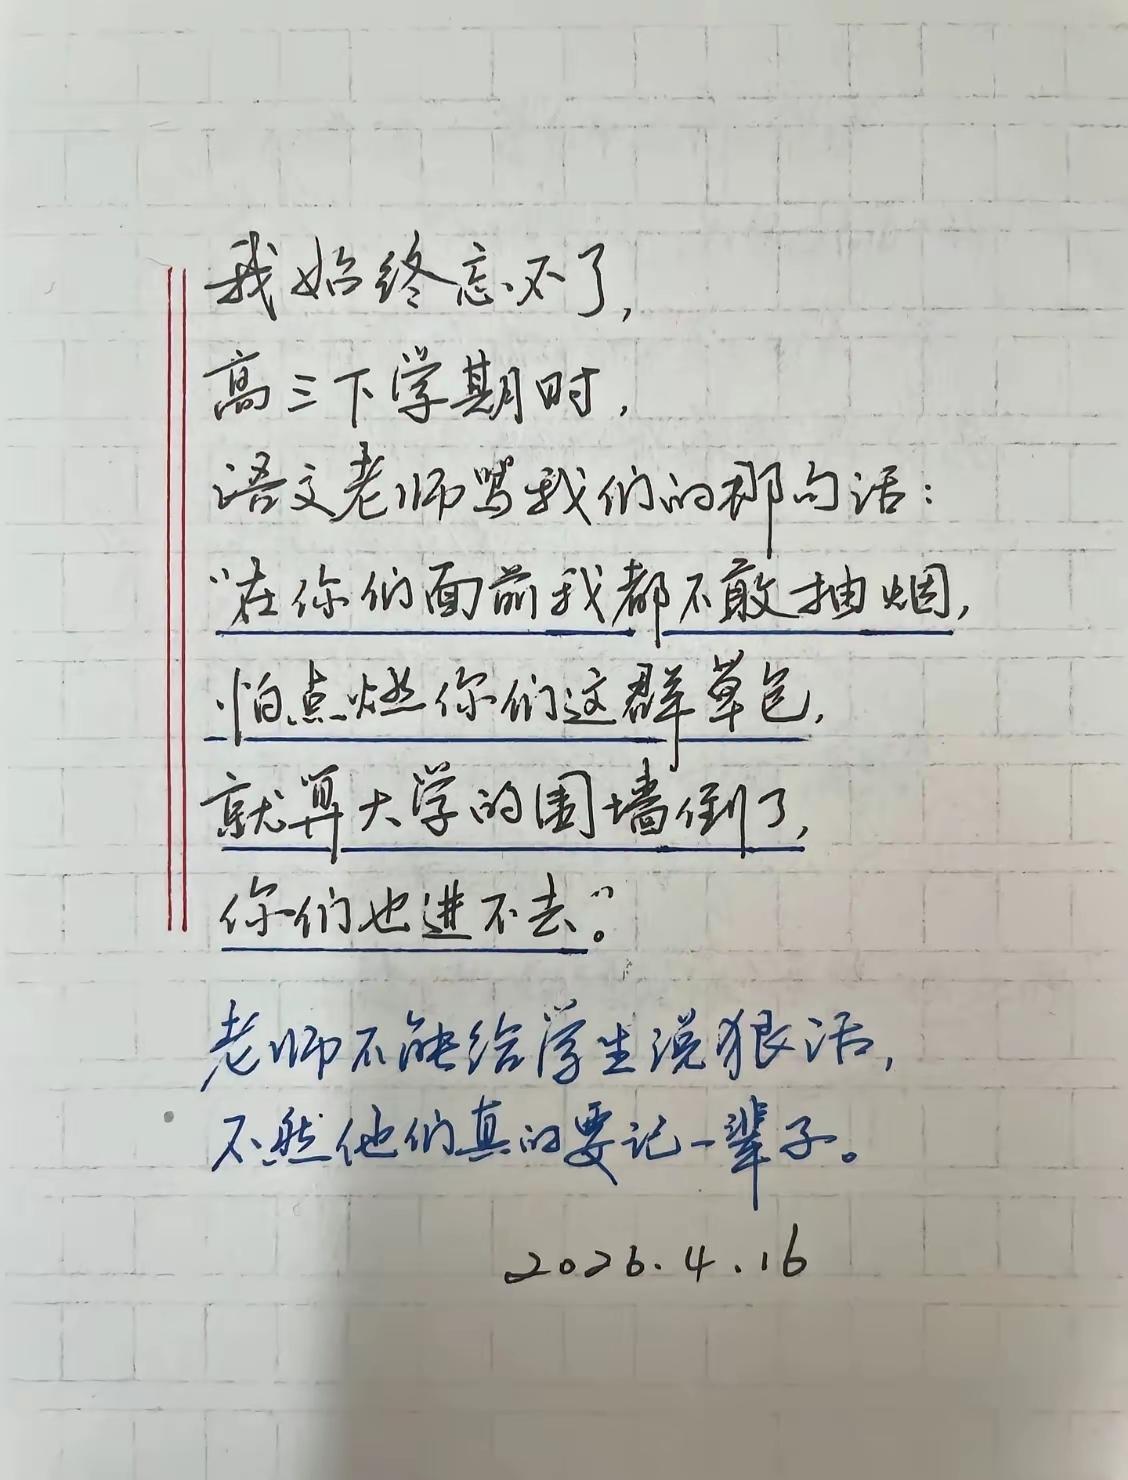 我始终忘不了,
高三下学期时,
语文老师骂我们的那句话:
“在你们面前我都不敢抽烟,
怕点燃你们这群草包,
就算大学的围墙倒了,
你们也进不去”。
老师不能给学生说狠话,
不然他们真的要记一辈子。
2026.4.16